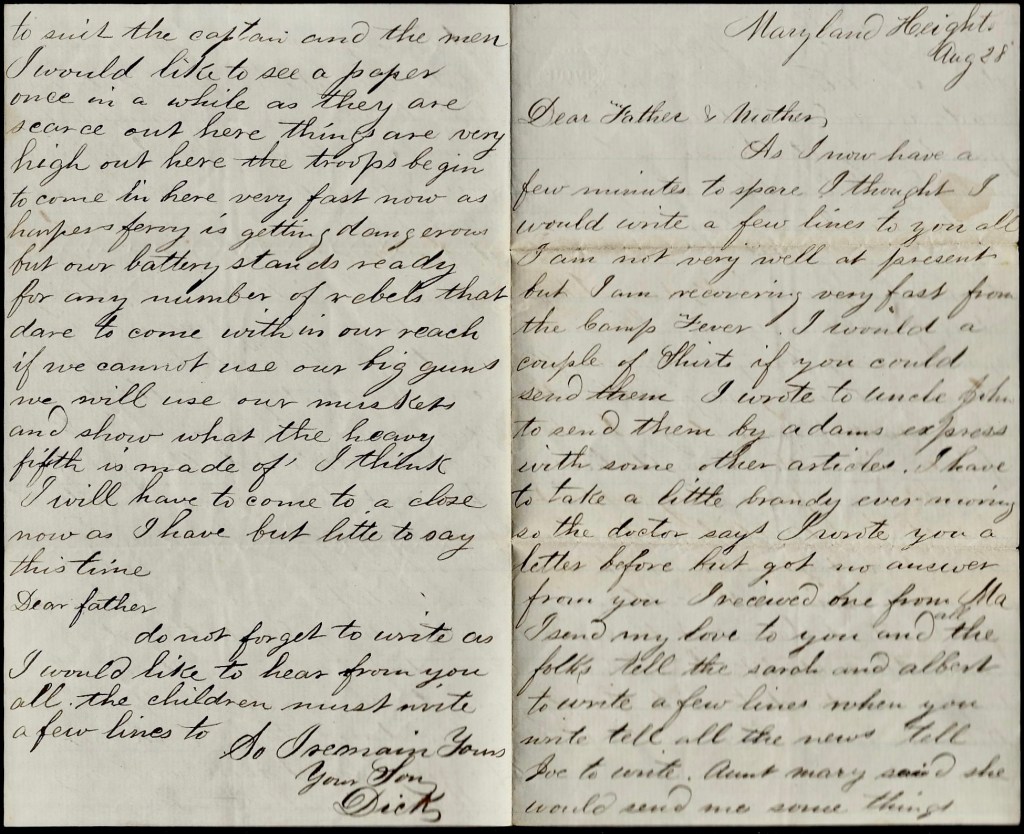 Maryland Heights
Aug 28
Dear Father & Mother
As I now have a
few minutes to spare I thought I
would write a few lines to you all
I am not very well at present
but I am recovering very fast from
the Camp Fever. I would a
couple of Shirts if you could
send them I wrote to uncle John
to send them by adams express
with some other articles. I have
to take a little brandy ever morning
so the doctor says I wrote you a
letter before but got no answer
from you I received one from Ma
I send my love to you and all the
folks tell the sarah and albert
to write a few lines when you
write tell all the news tell
Joe to write. Aunt mary said she
would send me some things
to suit the captain and the men
I would like to see a paper
once in a while as they are
scarce out here things are very
high out here the troops begin
to come in here very fast now as
harpers ferry is getting dangerous
but our battery stands ready
for any number of rebels that
dare to come with in our reach
if we cannot use our big guns
we will use our muskets
and show what the heavy
fifth is made of I think
I will have to come to a close
now as I have but litte to say
this time
Dear father
do not forget to write as
I would like to hear from you
all. the children must write
a few lines to
So I remain Yours
Your Son
Dick